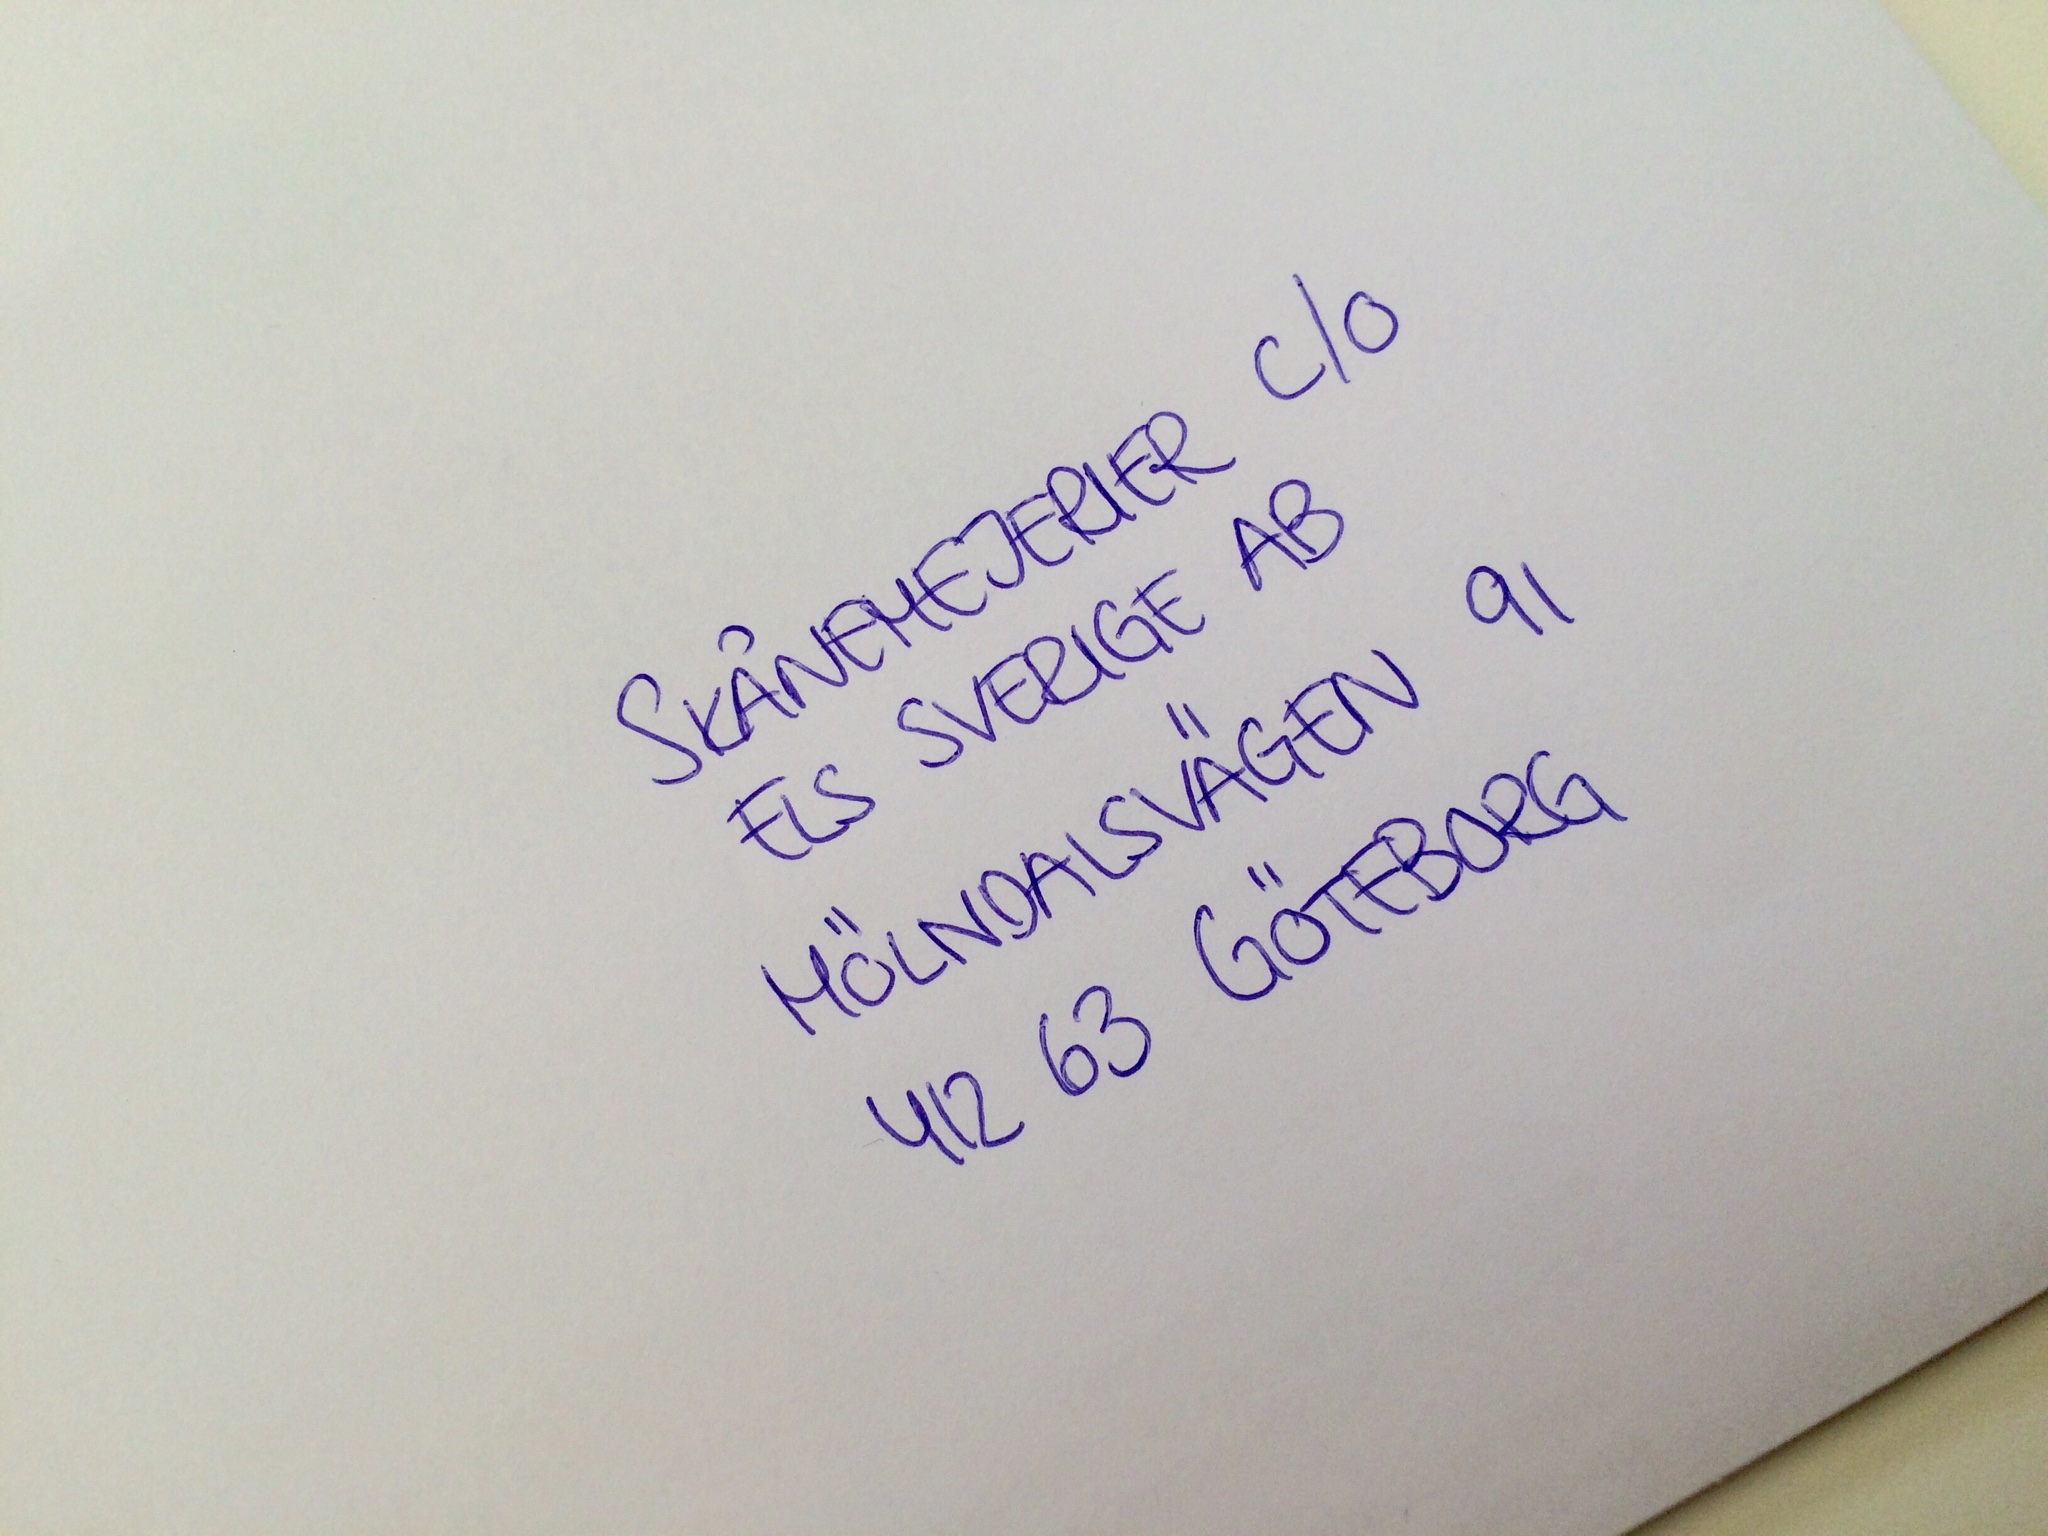 SKÅNEMEJERIER C/O
ELS SVERIGE AB
MÖLNDALSVÄGEN 91
412 63 GÖTEBORG